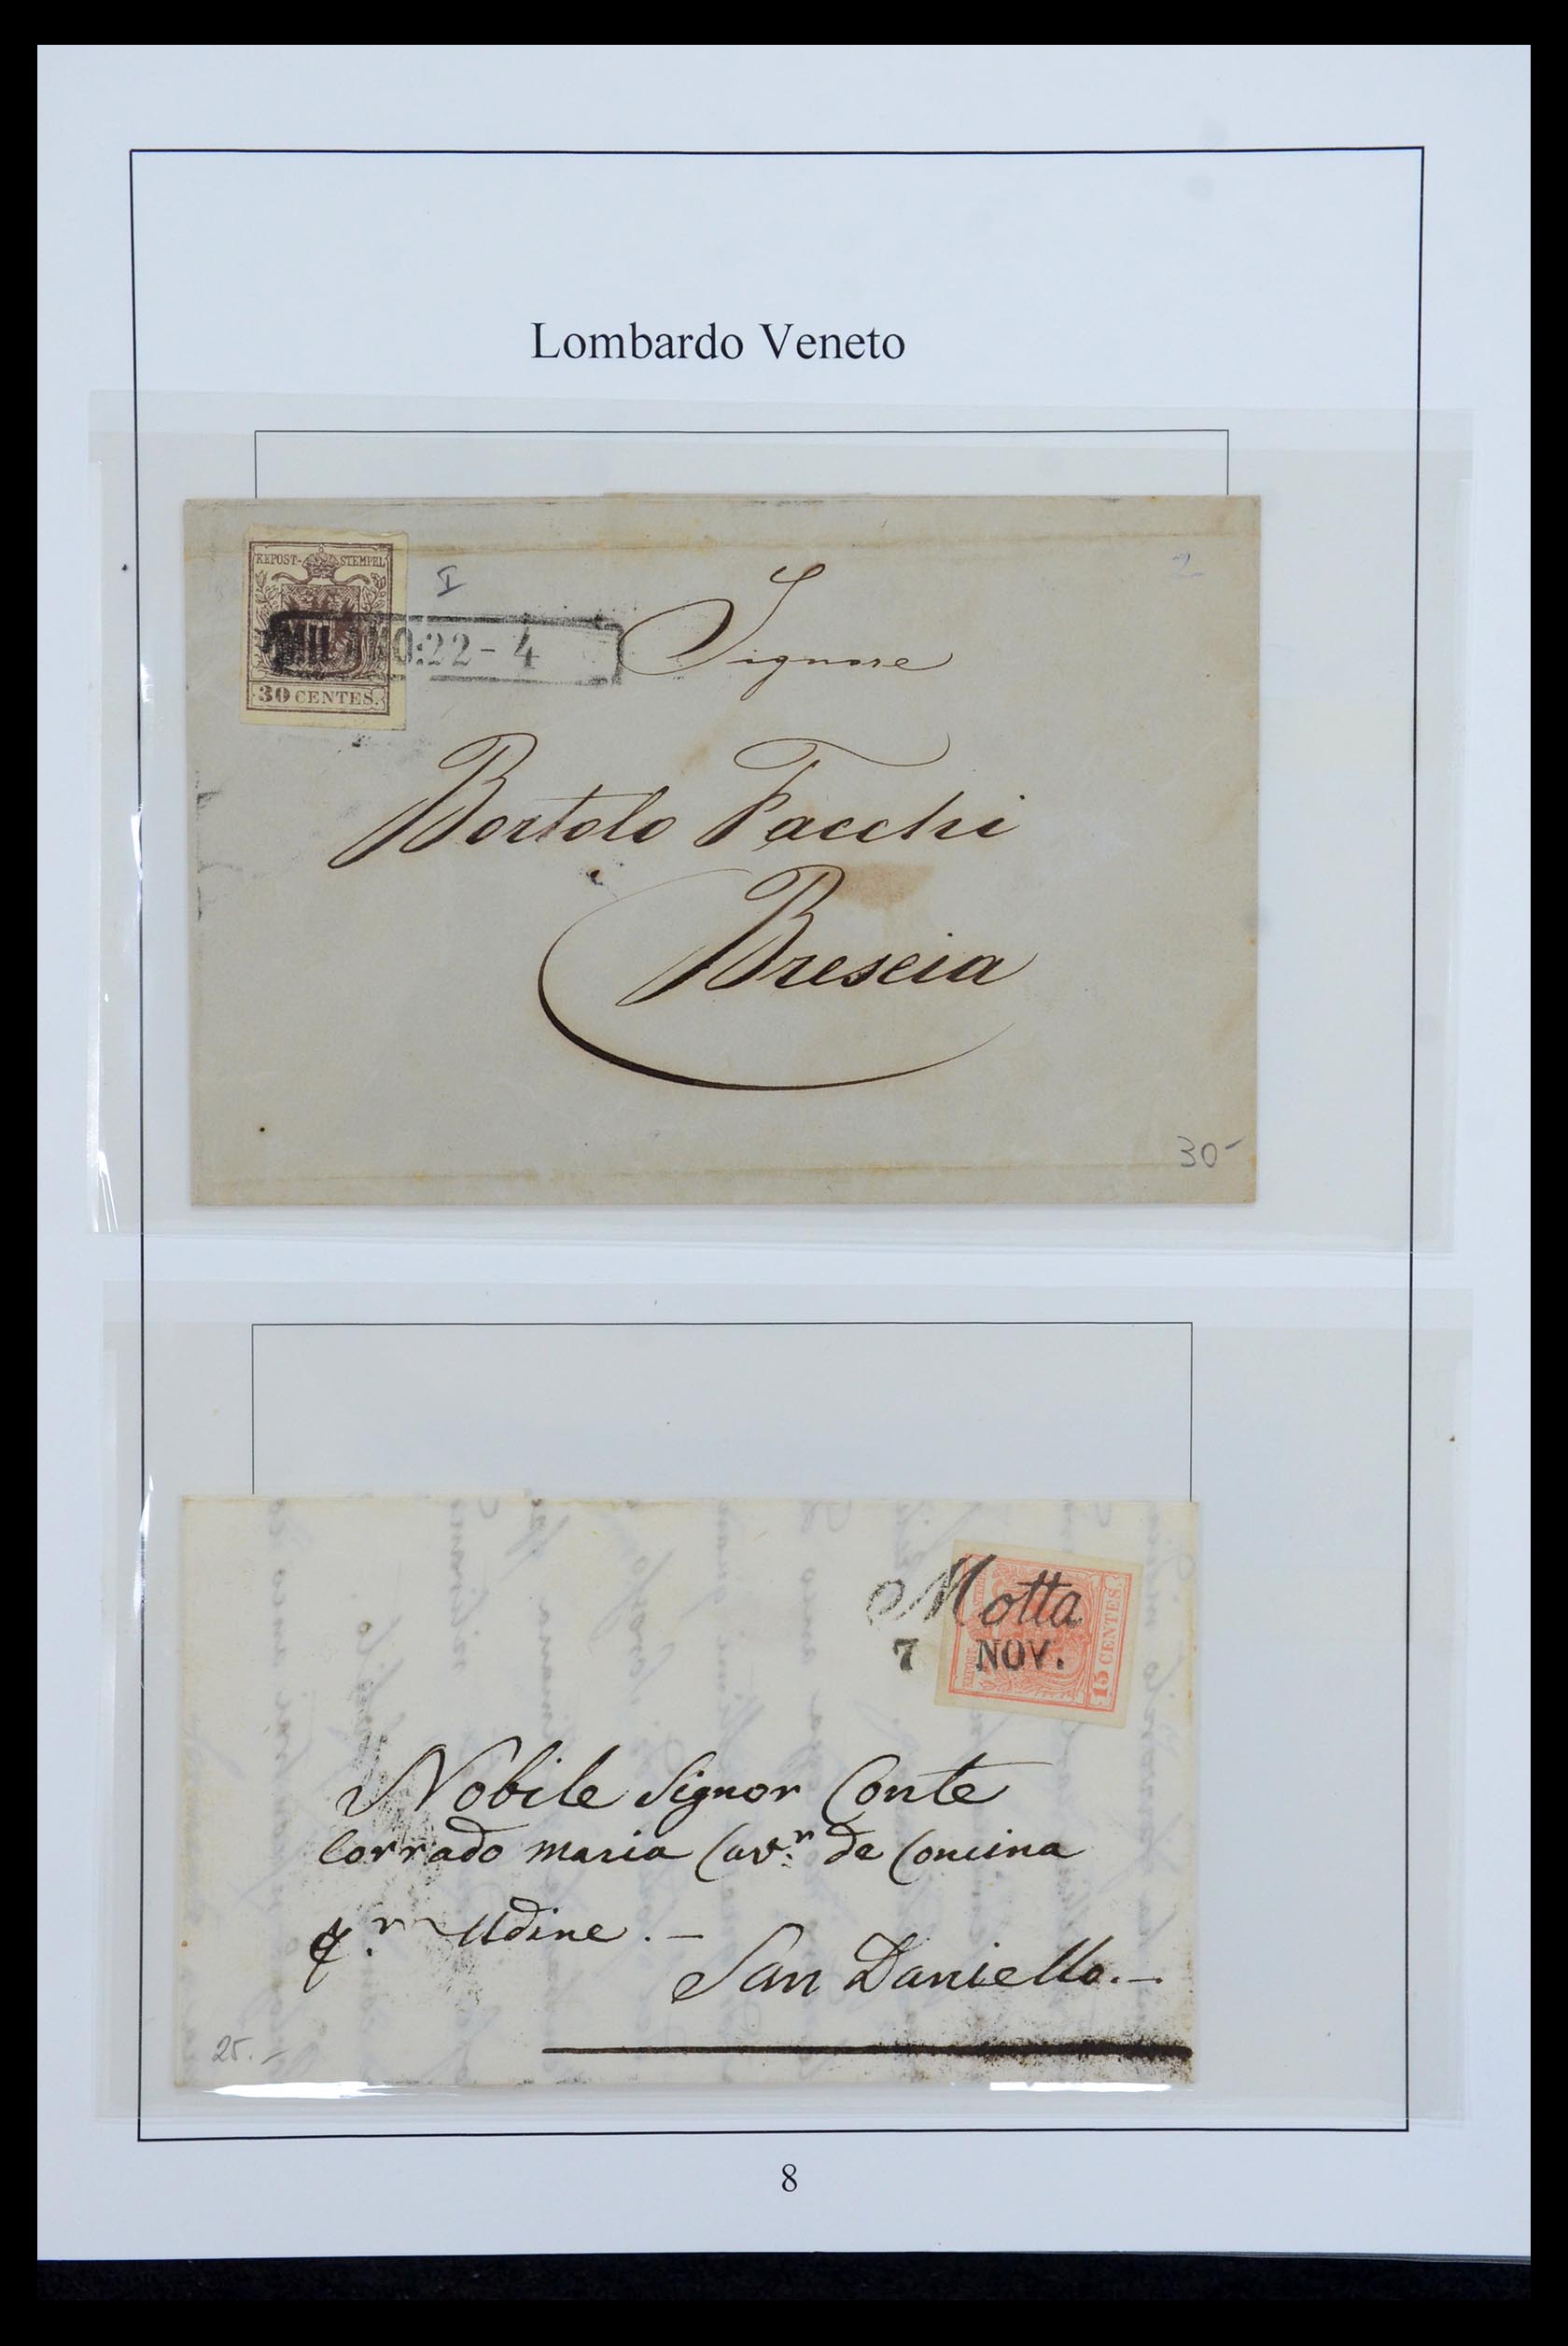 Lombardo Veneto
KKPOST-STEMPEL
I
2
MILANO:22-4
30 CENTES.
Signore
Bortolo Facchi
Brescia
30-
Motta
7 NOV.
15 CENTES.
Nobile Signor Conte
Corrado Maria Cav.r de Concina
Udine . —
San Daniello. —
25.-
8